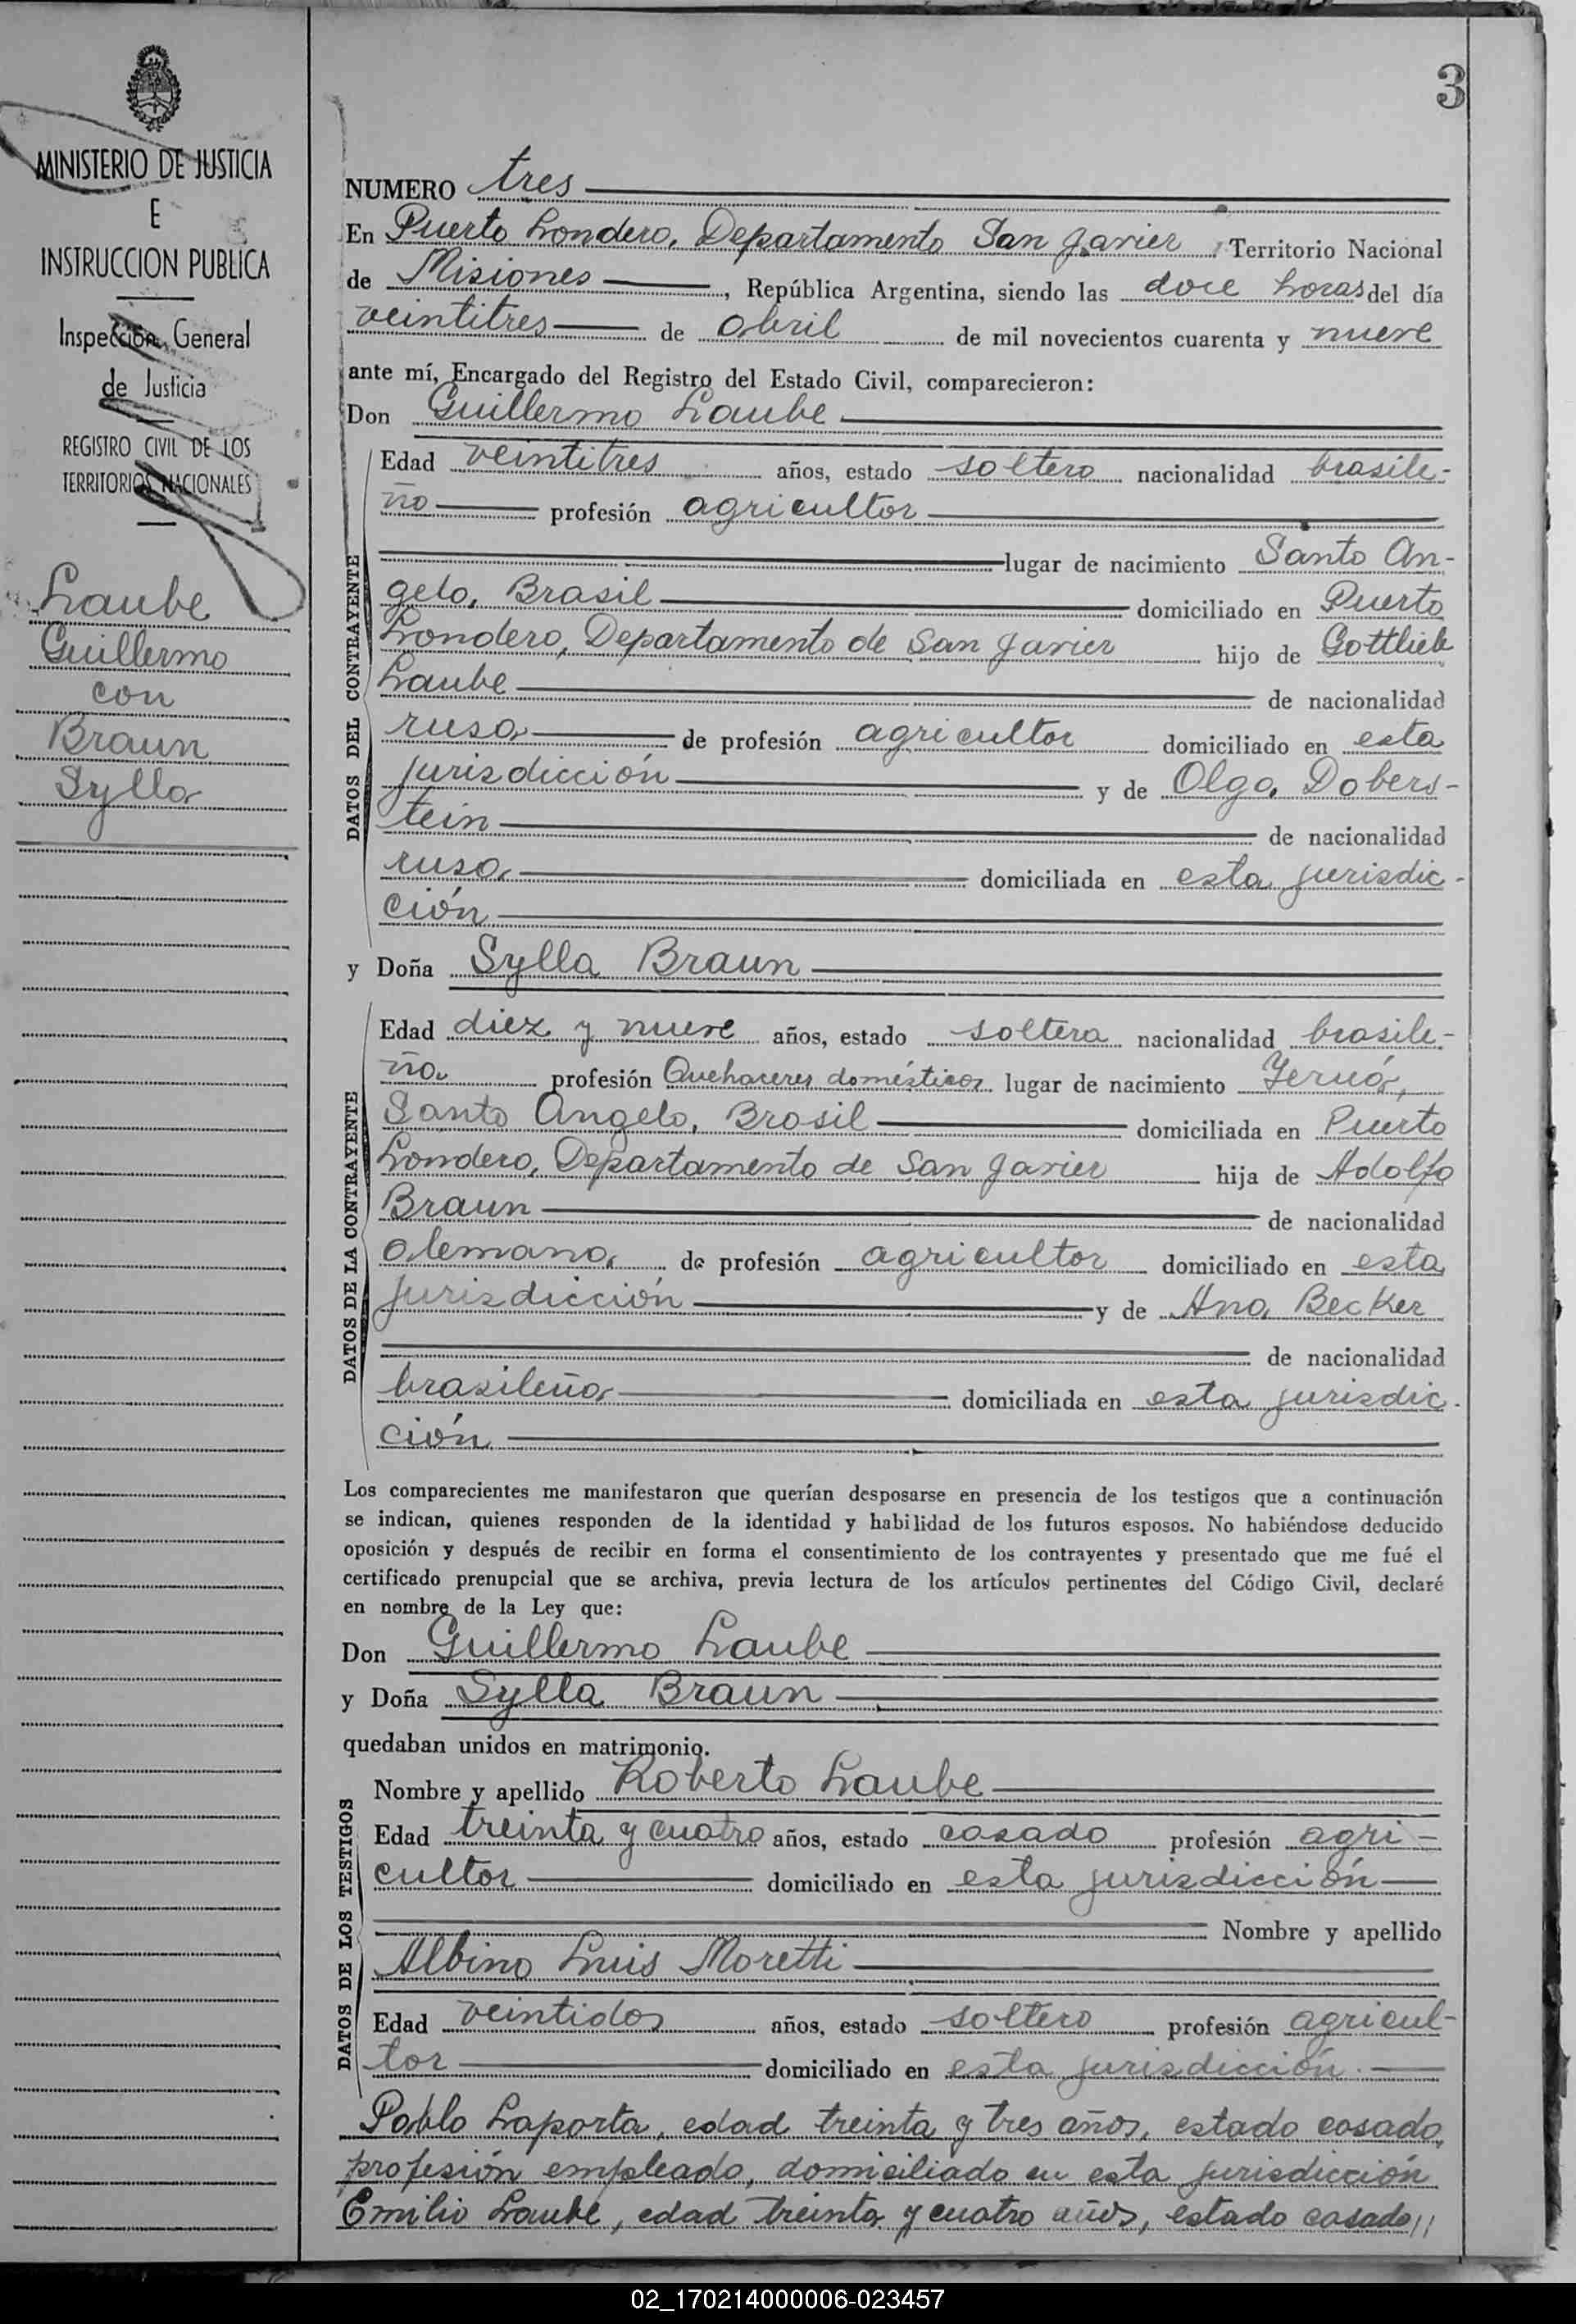 3
MINISTERIO DE JUSTICIA
E
INSTRUCCION PUBLICA
Inspección General
de Justicia
REGISTRO CIVIL DE LOS
TERRITORIOS NACIONALES
Laube
Guillermo
con
Braun
Sylla
NUMERO tres
En Puerto Londero, Departamento San Javier, Territorio Nacional
de Misiones, República Argentina, siendo las doce horas del día
veintitres de abril de mil novecientos cuarenta y nueve
ante mí, Encargado del Registro del Estado Civil, comparecieron:
Don Guillermo Laube
DATOS DEL CONTRAYENTE
Edad veintitres años, estado soltero nacionalidad brasile-
ño profesión agricultor
lugar de nacimiento Santo An-
gelo, Brasil domiciliado en Puerto
Londero, Departamento de San Javier hijo de Gottlieb
Laube de nacionalidad
rusa de profesión agricultor domiciliado en esta
jurisdicción y de Olga Dobers-
tein de nacionalidad
rusa domiciliada en esta jurisdic-
ción
y Doña Sylla Braun
DATOS DE LA CONTRAYENTE
Edad diez y nueve años, estado soltera nacionalidad brasile-
ña profesión Quehaceres domésticos lugar de nacimiento Yeruá,
Santo Angelo, Brasil domiciliada en Puerto
Londero, Departamento de San Javier hija de Adolfo
Braun de nacionalidad
alemana de profesión agricultor domiciliado en esta
jurisdicción y de Ana Becker
de nacionalidad
brasileña domiciliada en esta jurisdic-
ción
Los comparecientes me manifestaron que querían desposarse en presencia de los testigos que a continuación
se indican, quienes responden de la identidad y habilidad de los futuros esposos. No habiéndose deducido
oposición y después de recibir en forma el consentimiento de los contrayentes y presentado que me fué el
certificado prenupcial que se archiva, previa lectura de los artículos pertinentes del Código Civil, declaré
en nombre de la Ley que:
Don Guillermo Laube
y Doña Sylla Braun
quedaban unidos en matrimonio.
DATOS DE LOS TESTIGOS
Nombre y apellido Roberto Laube
Edad treinta y cuatro años, estado casado profesión agri-
cultor domiciliado en esta jurisdicción
Nombre y apellido
Albino Luis Moretti
Edad veintidos años, estado soltero profesión agricul-
tor domiciliado en esta jurisdicción.
Pablo Laporta, edad treinta y tres años, estado casado,
profesión empleado, domiciliado en esta jurisdicción
Emilio Laube, edad treinta y cuatro años, estado casado//
02_170214000006-023457